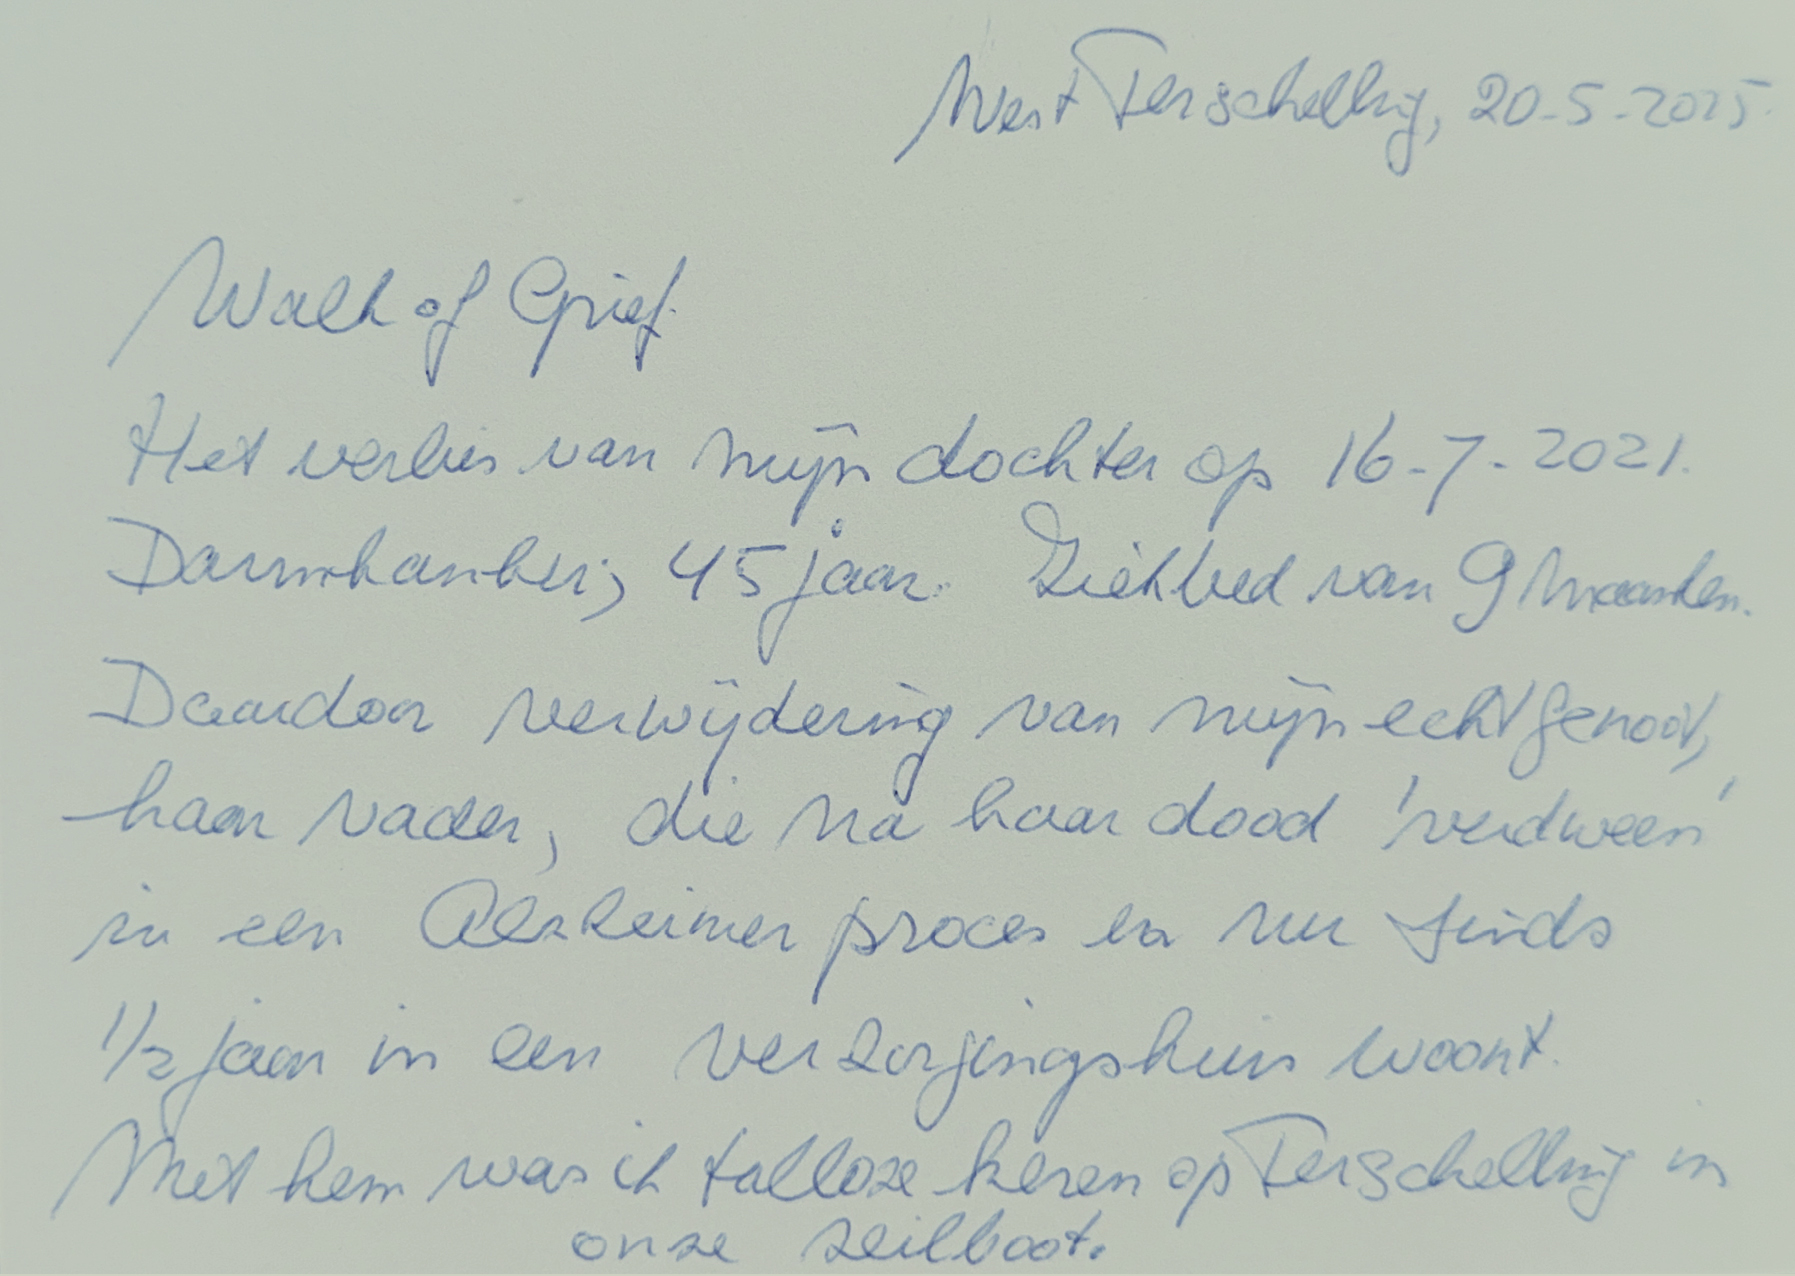 West Terschelling, 20-5-2025.
Walk of Grief.
Het verlies van mijn dochter op 16-7-2021.
Darmkanker, 45 jaar. Ziekbed van 9 maanden.
Daardoor verwijdering van mijn echtgenoot,
haar vader, die na haar dood 'verdween'
in een Alzheimer proces en nu sinds
1/2 jaar in een verzorgingshuis woont.
Met hem was ik talloze keren op Terschelling in
onze zeilboot.